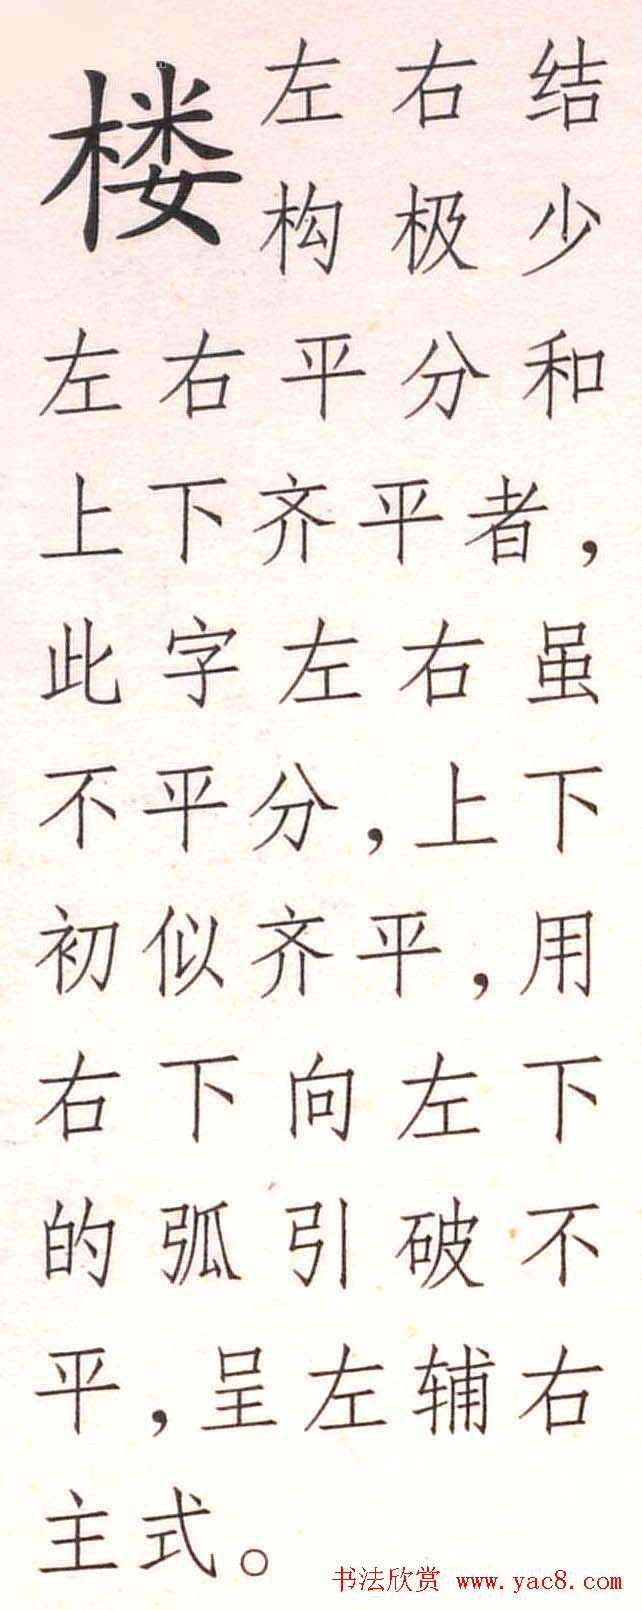 楼
左右结
构极少
左右平分和
上下齐平者，
此字左右虽
不平分，上下
初似齐平，用
右下向左下
的弧引破不
平，呈左辅右
主式。
书法欣赏 www.yac8.com